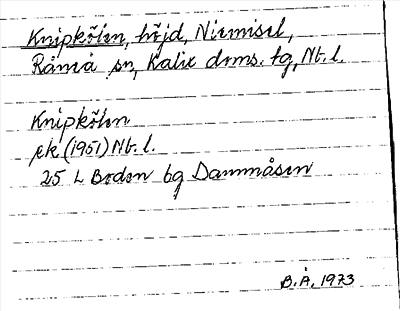 Knipkölen, höjd, Niemisel,
Råneå sn, Kalix doms. tg, Nb. l.
Knipkölen
ek (1951) Nb. l.
25 L Boden bg Dammåsen
B. Å. 1973